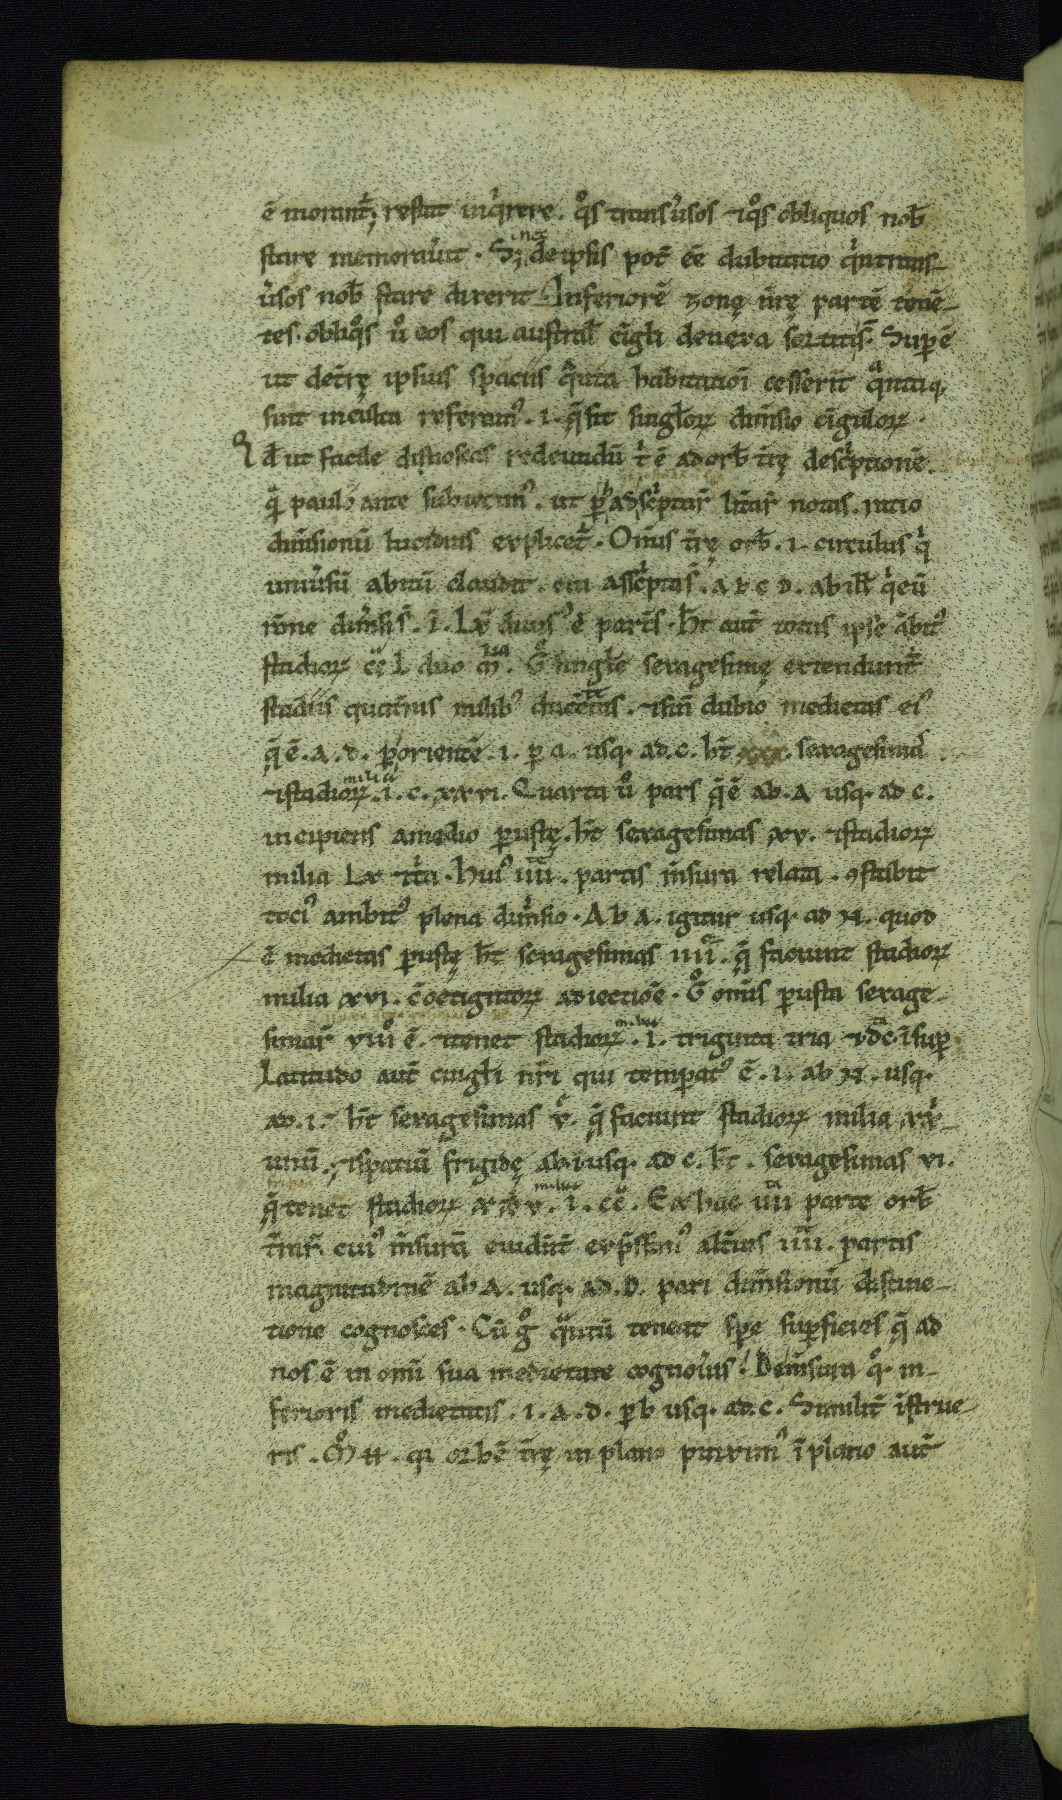 ē morant᷑; restat inq̇rere. q̊s transv̓sos ⁊q̊s obliquos nob̄
stare memorav̓it. Sꝫ nec de ipsis pot̄ eē dubitatio q̇n trans-
v̓sos nob̄ stare dixerit Inferiorē zonę nr̄ę partē tenē-
tes. obliq̊s v̊ eos qui austral᷑ cīgl̄i devexa sortiti s̄. Suꝑ ē
ut de tr̄ę ipsius spaciis q̇nta habitatiōi cesserīt q̇ntaq;
sint inculta referam᷒. i. q̄ sit singl̄oꝝ dim̄sio cīguloꝝ.
Qd̄ ut facile dinoscas redeundū t̓ ē ad orb̄ tr̄ę desc̓ptionē.
q̄ paulo ante subiecim᷒. ut ꝑ adsc̓ptaꝝ līt̄aꝝ notas. ratio
dim̄sionū lucidius explicet᷑. Om̄is tr̄ę orb̄. i. circulus q̇
univ̓sū ābitū claudit. cui assc̓pta s̄. a b c d. ab ill̄ q̇ eū
rōne dim̄si s̄. ī. Lx̄ divis᷒ ē partes. h̄t aut̄ totus ipse ābit᷒
stadioꝝ
stadiis quat̄nis milib᷒ ducentis. ⁊ sin̄ dubio medietas ei᷒
q̄ ē. a. d. ꝑ orientē i. ꝑ a. usq. ad. c. h̄t xxx. sexagesimas
⁊ stadioꝝ milia. i. c. xxvi. Quarta v̊ pars q̄ ē ab. A usq. ad c.
incipiens a medio ꝑustę. h̄t sexagesimas xv. ⁊ stadioꝝ
milia Lx ⁊ t̓a. hui᷒ iiii. partis m̄sura relata. ꝯstabit
toci᷒ ambit᷒ plena dim̄sio. Ab A. igitur usq. ad N. quod
ē medietas ꝑustę h̄t sexagesimas iiii. q̄ faciunt stadioꝝ
milia xvi. cū octigntoꝝ adiectiōe. G̊ om̄is ꝑusta sexage-
simaꝝ viii ē. ⁊ tenet stadioꝝ milia. i. triginta tria ⁊ dc. īsuꝑ
Latitudo aut̄ cingl̄i nr̄i qui temꝑat᷒ ē. i. ab N. usq.
ad. i. h̄t sexagesimas v. q̄ faciunt stadioꝝ milia xx-
unū. ⁊ spatiū frigidę ab. i usq. ad c. h̄t. sexagesimas vi.
q̄ tenet stadioꝝ xxv. milia. i. cc. Ex hac iiii parte orb̄
t̄rraꝝ. cui᷒ m̄surā evidēt̄ exp̄ssim᷒ alt̄ius iiii. partis
magnitudinē ab A. usq. ad. D. pari dim̄sionū distinc-
tione cognosces. Cū g̊ q̇ntū teneat spe suꝑficies q̄ ad
nos ē in om̄i sua medietate cognov̓is. De m̄sura q̊. in-
ferioris medietatis. i. a. d. ꝑ b usq. ad. c. Similit̄ īstrue-
ris. M̊ . q̇ orbē tr̄ę in plano pinxim᷒ ī plano aut̄